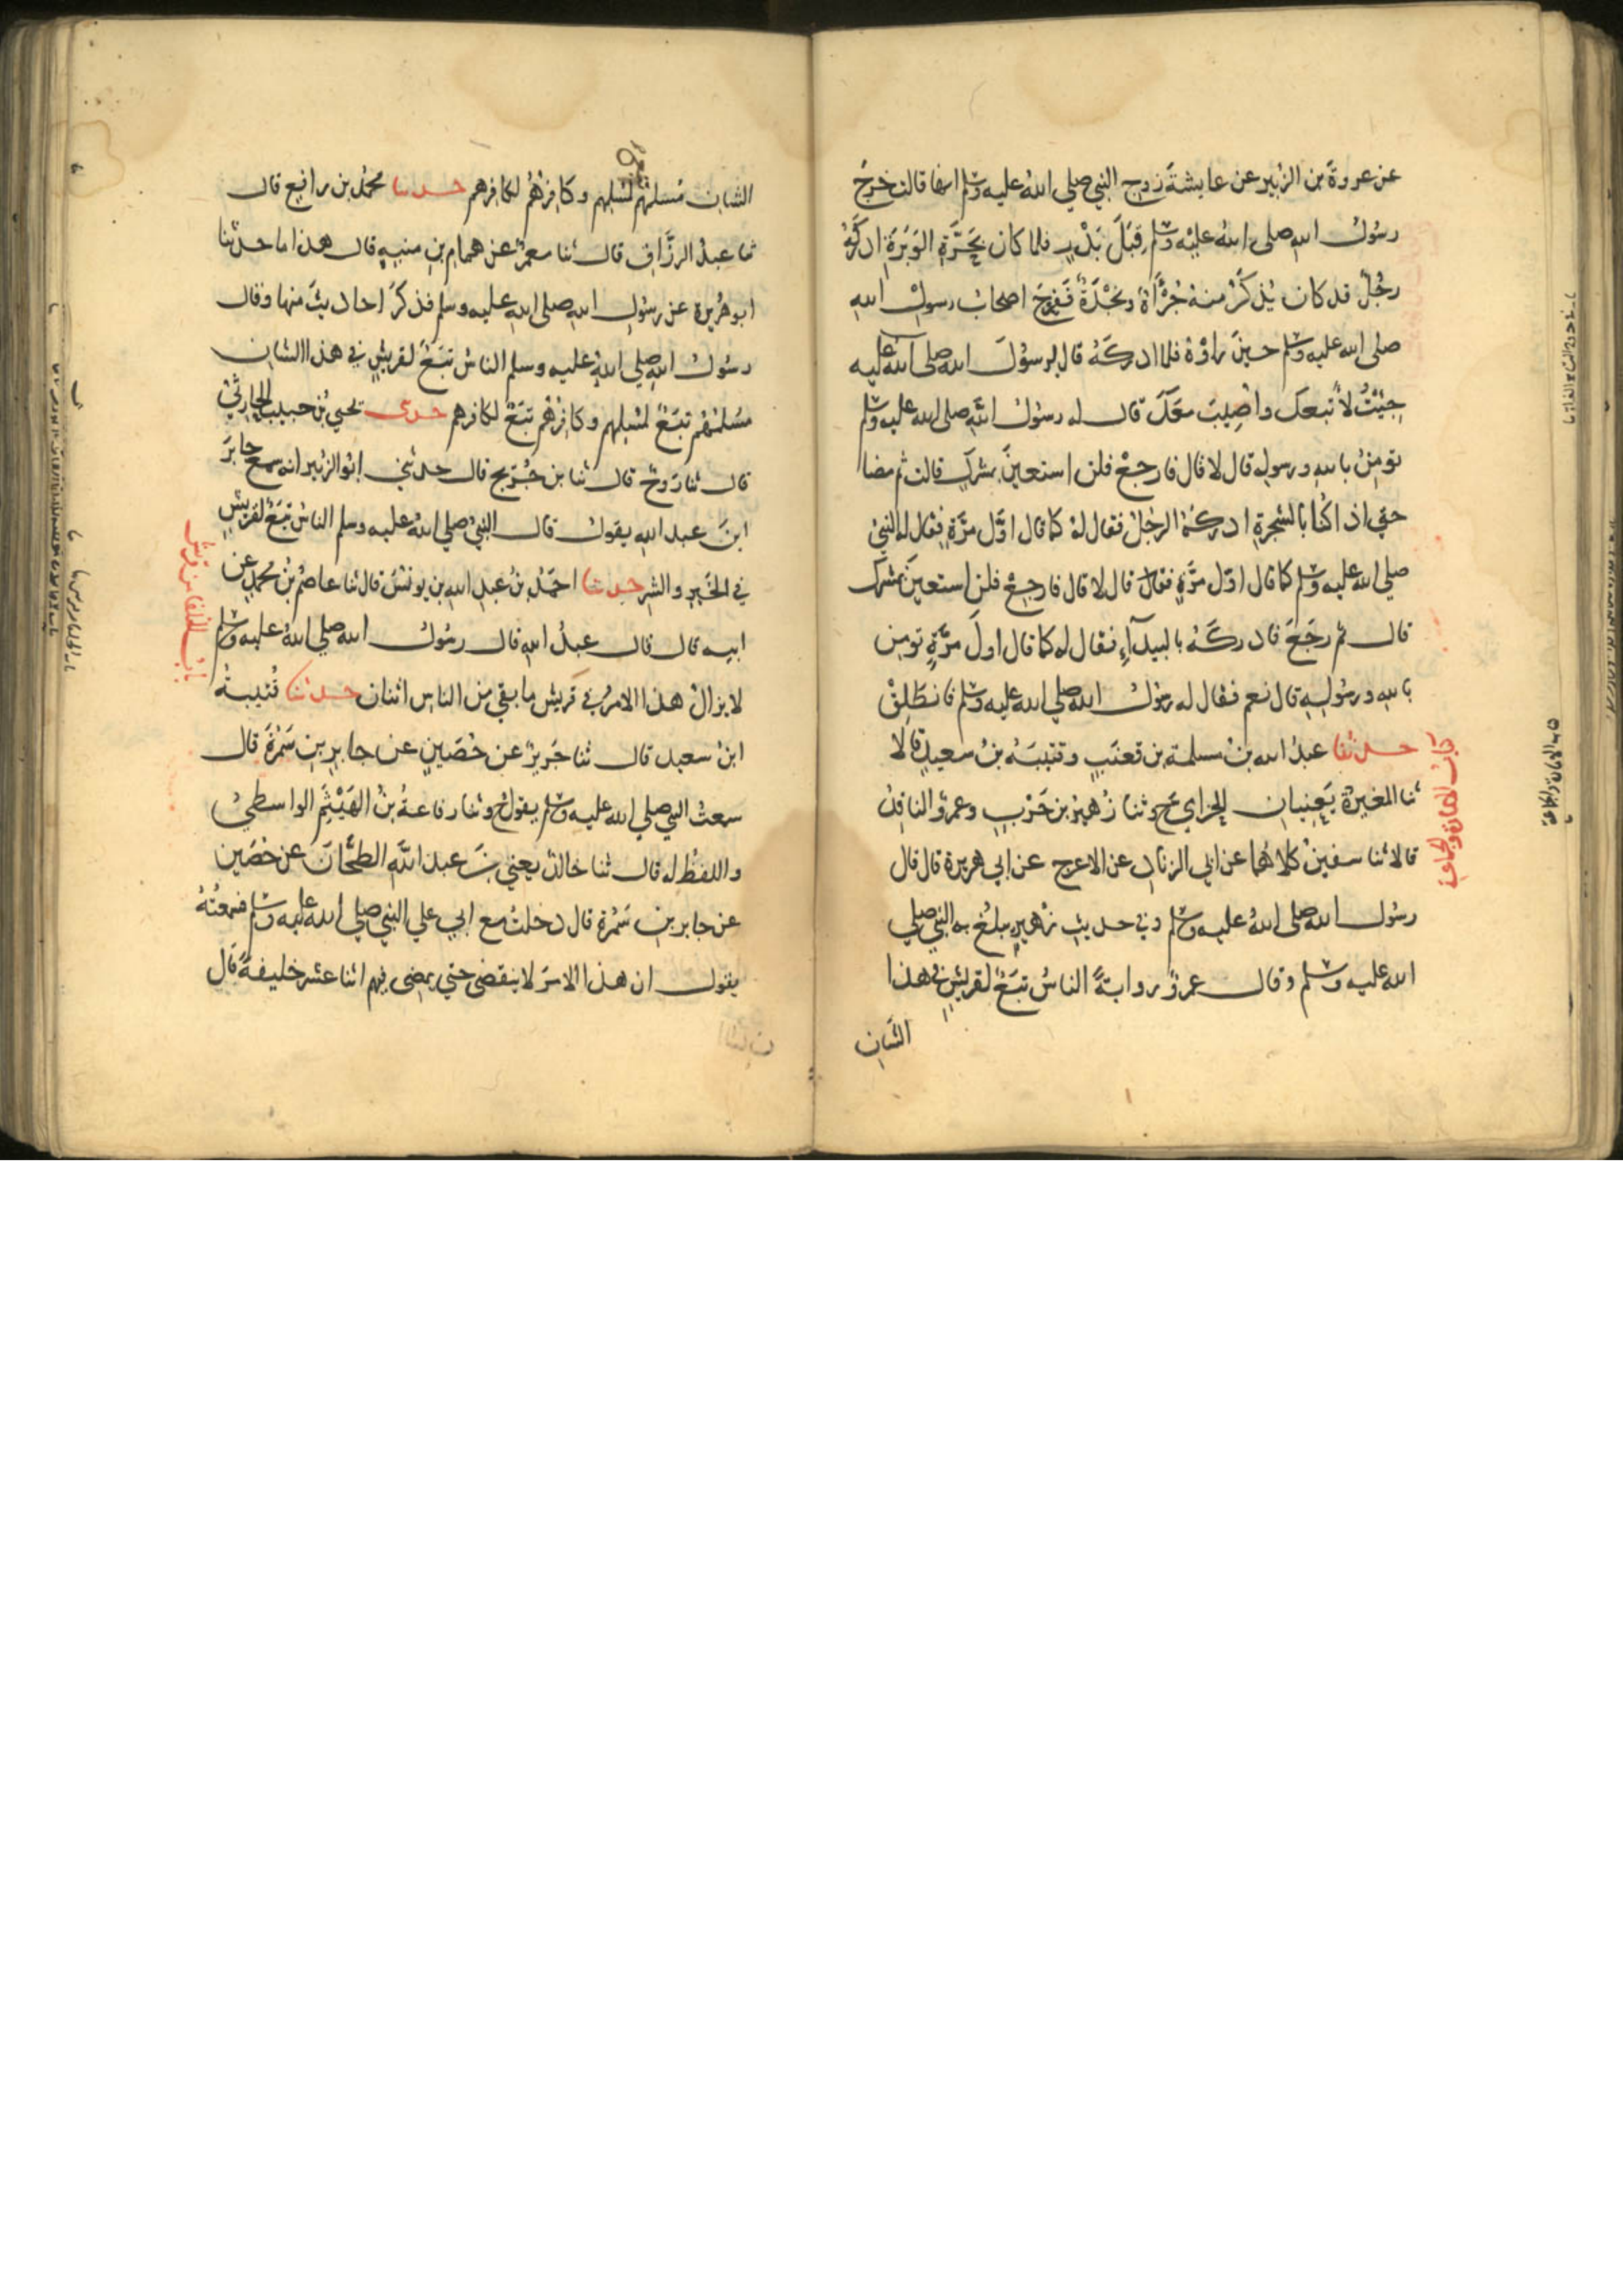 عن عروة بن الزبير عن عايشة زوج النبي صلى الله عليه وسلم انها قالت خرج
رسول الله صلى الله عليه وسلم قِبَلَ بَدْرٍ فلما كان بحَرَّةِ الوَبَرَةِ ادركَهُ
رجُلٌ قد كان يُذكَرُ منهُ جُرْأَةٌ ونَجْدَةٌ فَفَرِحَ اصحابُ رسولِ الله
صلى الله عليه وسلم حينَ راوْهُ فلما ادركَهُ قال لرسولِ الله صلى الله عليه
جِئْتُ لأتبعك واُصِيبَ معَكَ قال له رسول الله صلى الله عليه وسلم
تومِنُ بالله ورسولِه قال لا قال فارجعْ فلن استعينَ بمشركٍ قالت ثم مضا
حتي اذا كُنا بالشجرةِ ادركهُ الرجُلُ فقال لهُ كما قال اوَّل مرَّةٍ فقال له النبيُ
صلي الله عليه وسلم كما قال اوّل مرَّةٍ فقال قال لا قال فارجِعْ فلن استعينَ بمشرك
قال ثم رجَعَ فادركَهُ بالبيدآءِ فقال له كما قال اولَ مرَّةٍ تومِن
بالله ورسُولِهِ قال نعم فقال له رسول الله صلي الله عليه وسلم فانطَلِقْ
حدثنا عبدُ الله بنُ مسلمة بن قعنَبٍ وقتيبَةُ بنُ سعيدٍ قالا
ثنا المغيرةُ يَعنِيانِ الحِزامي ح وثنا زُهيرُ بن حَرْبٍ وعمرٌو الناقِدُ
قالا ثنا سفينُ كلاهُما عن ابي الزنادِ عن الاعرج عن ابي هريرة قال قال
رسُول الله صلى الله عليه وسلم وفي حديثِ زُهيرٍ يبلُغُ به النبيَ صلي
الله عليه وسلم وقال عمرٌو روايةً الناسُ تبَعٌ لقريشٍ في هذا
الشان
كتاب الامارة والجماعة
الشانِ مُسلمُهُم لمسلمهم وكافِرُهُم لكافرهم حدثنا محمدُ بن رافِعٍ قال
ثنا عبدُ الرزَّاقِ قال ثنا معمرٌ عن همامِ بنِ منبهٍ قال هذا ما حدثنا
ابو هُريرة عن رسُولِ الله صلى الله عليه وسلم فذكرَ احاديثَ منها وقال
رسُولُ الله صلي الله عليه وسلم الناسُ تبَعٌ لقريشٍ في هذا الشانِ
مُسلمُهُم تبَعٌ لمسلمهم وكافِرُهُم تبَعٌ لكافرهم حدثنى يحيي بنُ حبيب الحارثيُ
قال ثنا رَوحٌ قال ثنا بن جُرَيج قال حدثني ابُو الزبير انه سمع جابرَ
ابنَ عبد الله يقولُ قال النبيُ صلي الله عليه وسلم الناسُ تبَعٌ لقريشٍ
في الخَيرِ والشرِ حدثنا احمَدُ بنُ عبدِ الله بن يونسَ قال ثنا عاصمُ بنُ محمدٍ عن
ابيه قال قال عبدُ الله قال رسُولُ الله صلي الله عليه وسلم
لا يزالُ هذا الامرُ في قريش ما بقي من الناسِ اثنان حدثنا قُتيبةُ
ابنُ سعيد قال ثنا جَريرٌ عن حُصَينٍ عن جابرِ بنِ سَمُرَةَ قال
سمعتُ النبي صلي الله عليه وسلم يقول ح وثنا رفاعةُ بنُ الهَيْثَمِ الواسطيُ
واللفظُ له قال ثنا خالدٌ يعني بنَ عبد الله الطحَّانَ عن حُصَين
عن جابر بن سَمُرة قال دخلتُ مع ابي علي النبي صلي الله عليه وسلم فسمعتُهُ
يقول ان هذا الامرَ لا ينقضى حتي يمضى فيهم اثنا عشر خليفةً قال
باب الخلفا من قريش